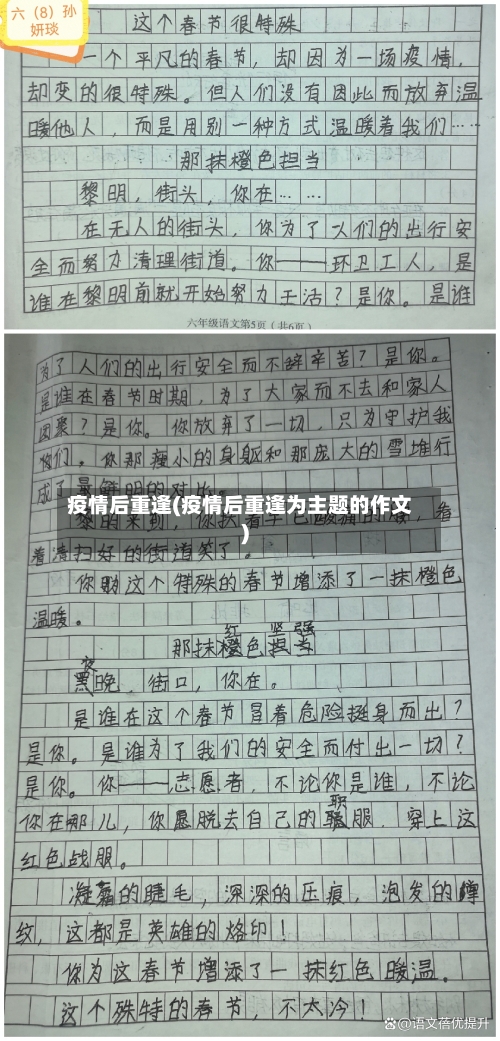 六（8）孙
妍琰
这个春节很特殊
一个平凡的春节，却因为一场疫情，
却变的很特殊。但人们没有因此而放弃温
暖他人，而是用别一种方式温暖着我们……
那抹橙色担当
黎明，街头，你在……
在无人的街头，你为了人们的出行安
全而努力清理街道。你——环卫工人，是
谁在黎明前就开始努力干活？是你。是谁
六年级语文第5页（共6页）
为了人们的出行安全而不辞辛苦？是你。
是谁在春节时期，为了大家而不去和家人
团聚？是你。你放弃了一切，只为守护我
们。你那瘦小的身躯和那庞大的雪堆行
成了最鲜明的对比。
疫情后重逢(疫情后重逢为主题的作文
)
黎明来到，你扶着早已酸痛的腰，看
着清扫好的街道笑了。
你助这个特殊的春节增添了一抹橙色
温暖。
那抹红色坚强
夜晚，街口，你在。
是谁在这个春节冒着危险挺身而出？
是你。是谁为了我们的安全而付出一切？
是你。你——志愿者，不论你是谁，不论
你在哪儿，你愿脱去自己的职服，穿上这
红色战服。
凝霜的睫毛，深深的压痕，泡发的
纹，这都是英雄的烙印！
你为这春节增添了一抹红色暖温。
这个殊特的春节，不太冷！
@语文蓓优提升